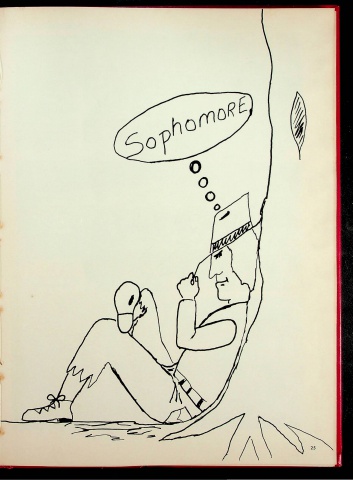 SophomoRE
25